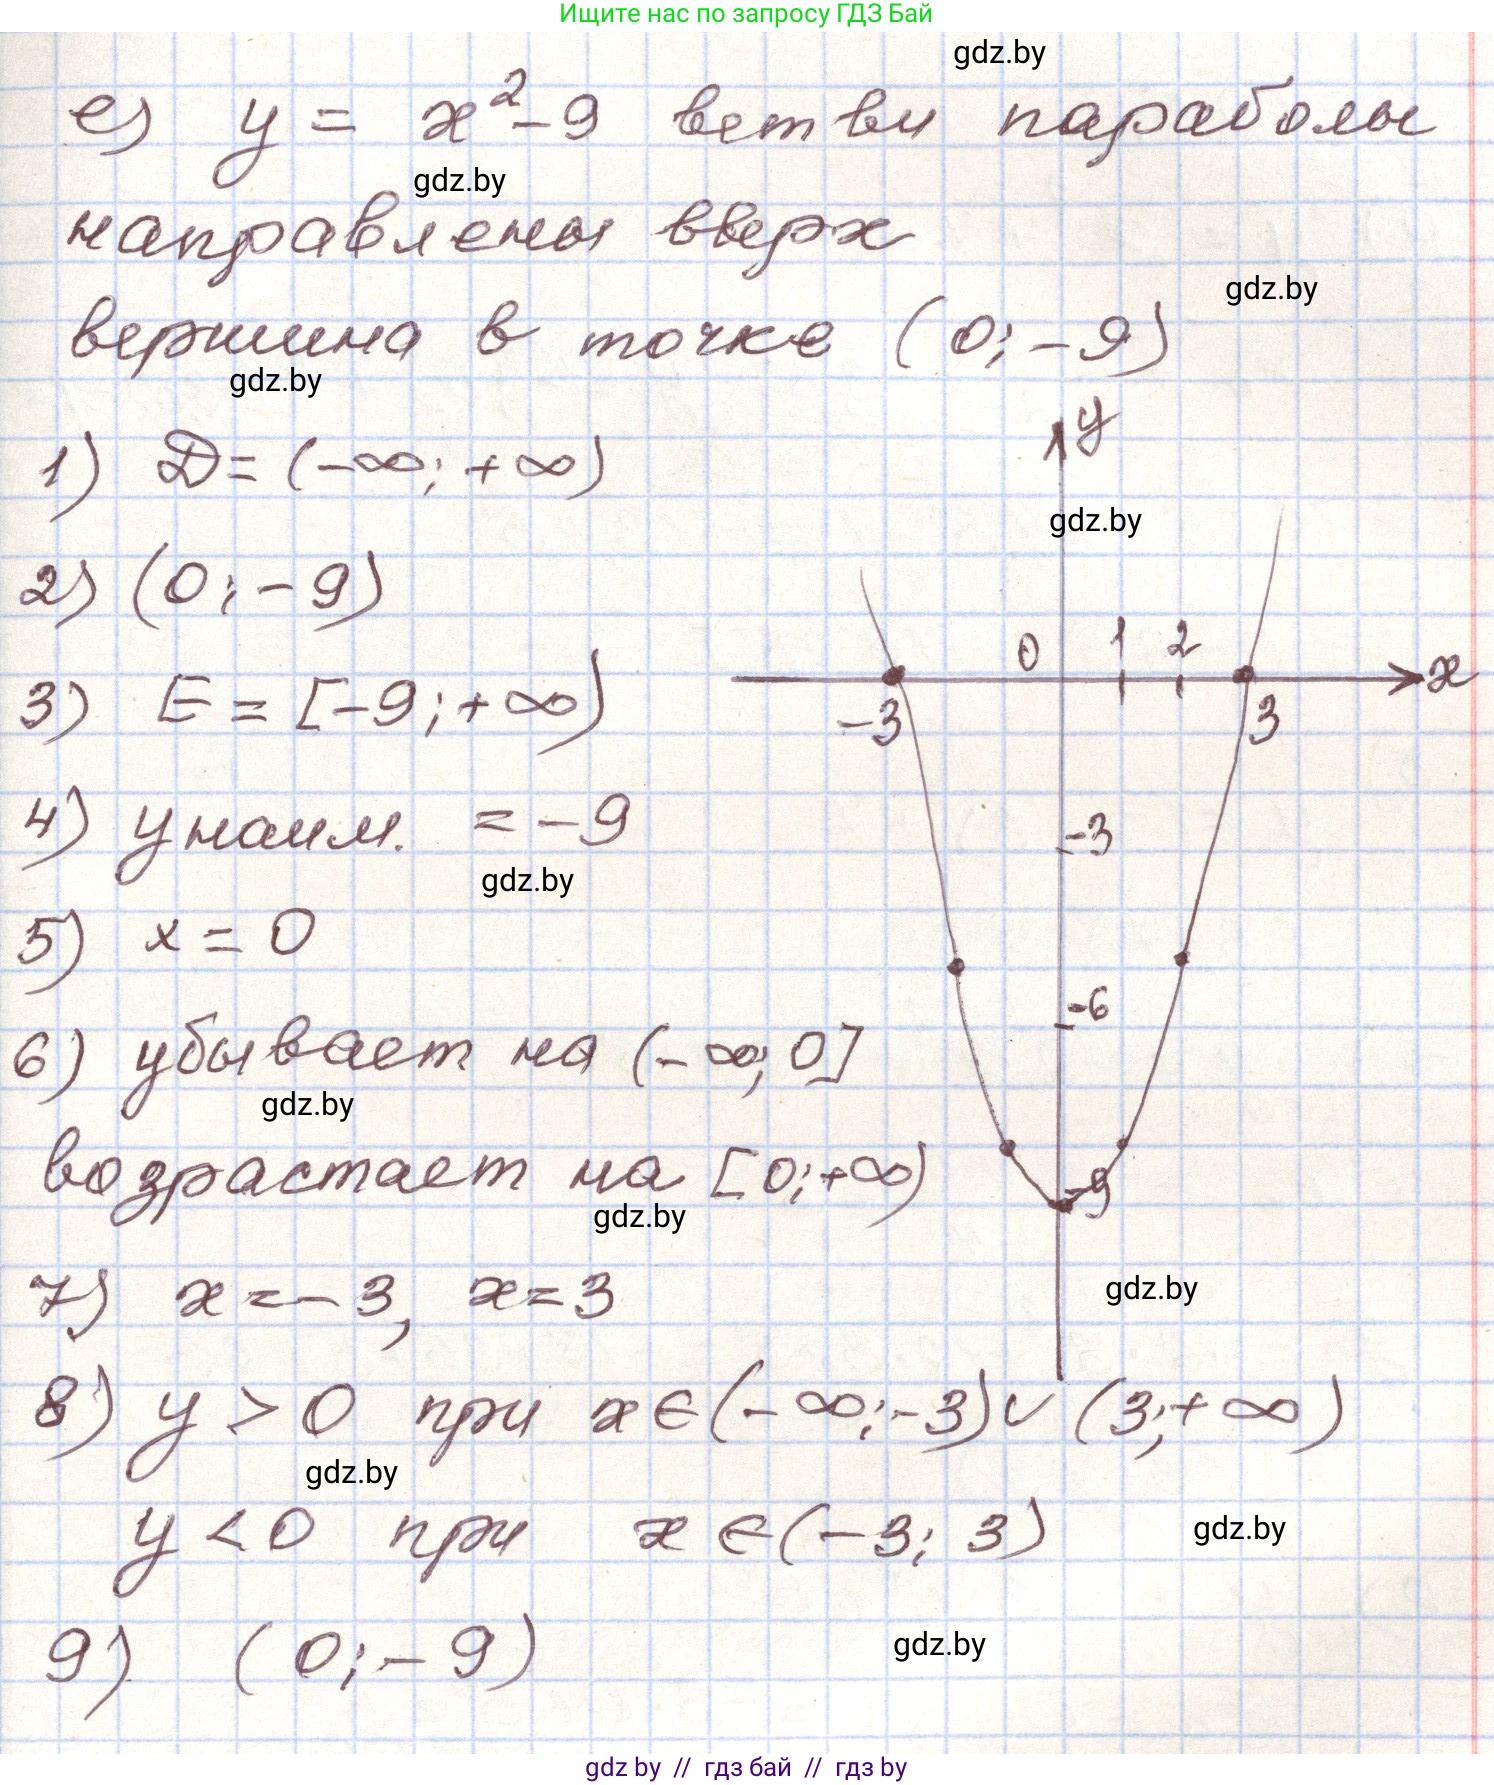 Ищите нас по запросу ГДЗ Бай
gdz.by
е) y = x²-9 ветви параболы
gdz.by
направлены вверх
gdz.by
вершина в точке (0; -9)
gdz.by
y
1) D = (-∞; +∞)
gdz.by
2) (0; -9)
0 1 2 x
3) E = [-9; +∞)
-3 3
4) y наим. = -9
-3
gdz.by
5) x = 0
-6
6) убывает на (-∞; 0]
gdz.by
возрастает на [0; +∞)
-9
gdz.by
7) x = -3, x = 3
gdz.by
8) y > 0 при x ∈ (-∞; -3) ∪ (3; +∞)
gdz.by
y < 0 при x ∈ (-3; 3)
gdz.by
9) (0; -9)
gdz.by
gdz by // гдз бай // гдз by